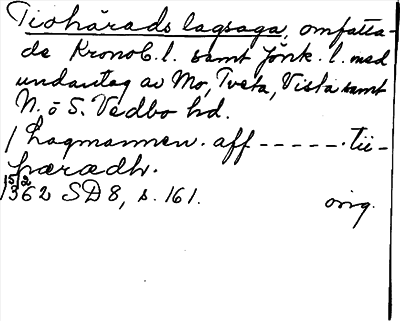 Tiohärads lagsaga, omfatta-
de Kronob. l. samt Jönk. l. med
undantag av Mo, Tveta, Vista samt
N. o S. Vedbo hd.
/ Lagmannen. aff - - - - - . tii-
hæraedh.
1362 SD 8, s. 161. orig.